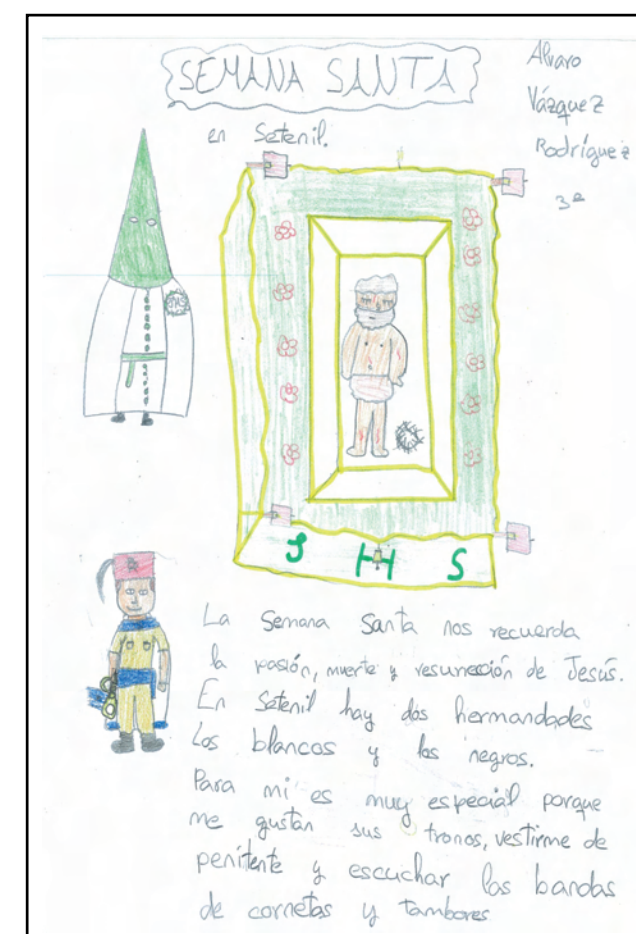 SEMANA SANTA
en Setenil.
Alvaro
Vázquez
Rodríguez
3º
J H S
La Semana Santa nos recuerda
la pasión, muerte y resurrección de Jesús.
En Setenil hay dos hermandades
Los blancos y los negros.
Para mi es muy especial porque
me gustan sus tronos, vestirme de
penitente y escuchar las bandas
de cornetas y tambores